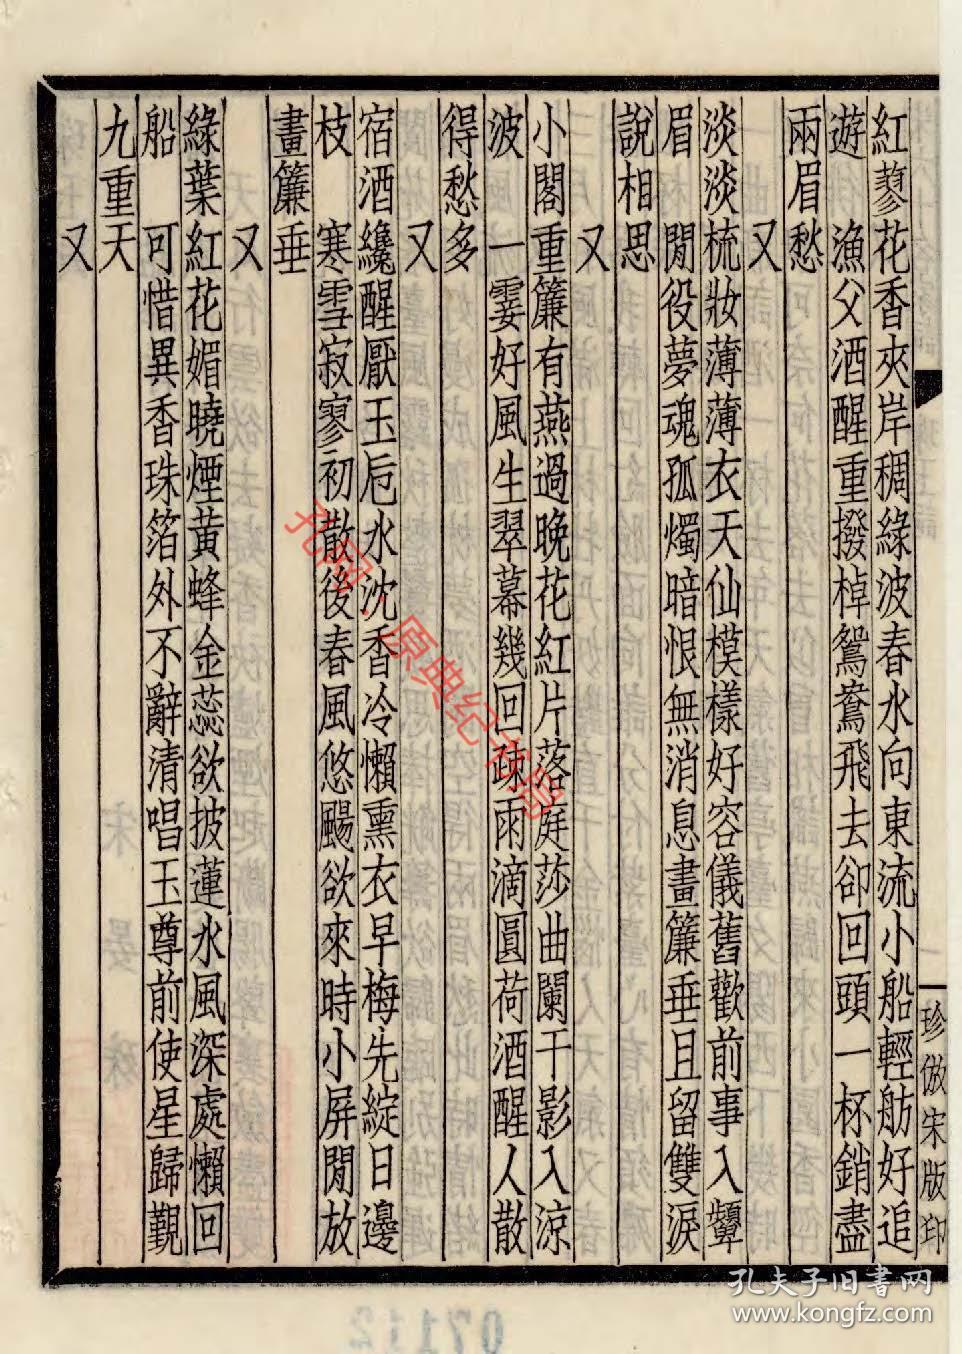 紅蓼花香夾岸稠綠波春水向東流小船輕舫好追
遊　漁父酒醒重撥棹鴛鴦飛去卻回頭一杯銷盡
兩眉愁
又
淡淡梳妝薄薄衣天仙模樣好容儀舊歡前事入顰
眉　閒役夢魂孤燭暗恨無消息畫簾垂且留雙淚
說相思
又
小閣重簾有燕過晚花紅片落庭莎曲闌干影入涼
波　一霎好風生翠幕幾回疎雨滴圓荷酒醒人散
得愁多
又
宿酒纔醒厭玉卮水沈香冷懶熏衣早梅先綻日邊
枝　寒雪寂寥初散後春風悠颺欲來時小屏閒放
畫簾垂
又
綠葉紅花媚曉煙黃蜂金蕊欲披蓮水風深處懶回
船　可惜異香珠箔外不辭清唱玉尊前使星歸覲
九重天
又
珍倣宋版印
孔网·原典纪书局
孔夫子旧书网
www.kongfz.com
07112